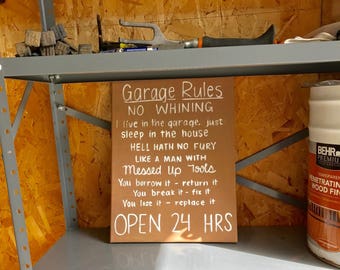 Garage Rules
NO WHINING
I live in the garage, just
sleep in the house
HELL HATH NO FURY
LIKE A MAN WITH
Messed Up Tools
You borrow it - return it
You break it - fix it
You lose it - replace it
OPEN 24 HRS
BEHR
PREMIUM
TRANSPARENT
PENETRATING
WOOD FIN